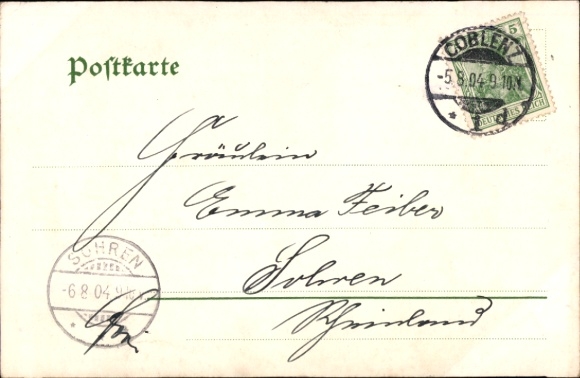 Postkarte
COBLENZ
-5.8.04.9-10.N.
1 d
5
DEUTSCHES REICH
Fräulein
Emma Feiber
Sohren
Rheinland
SOHREN
-6.8.04.